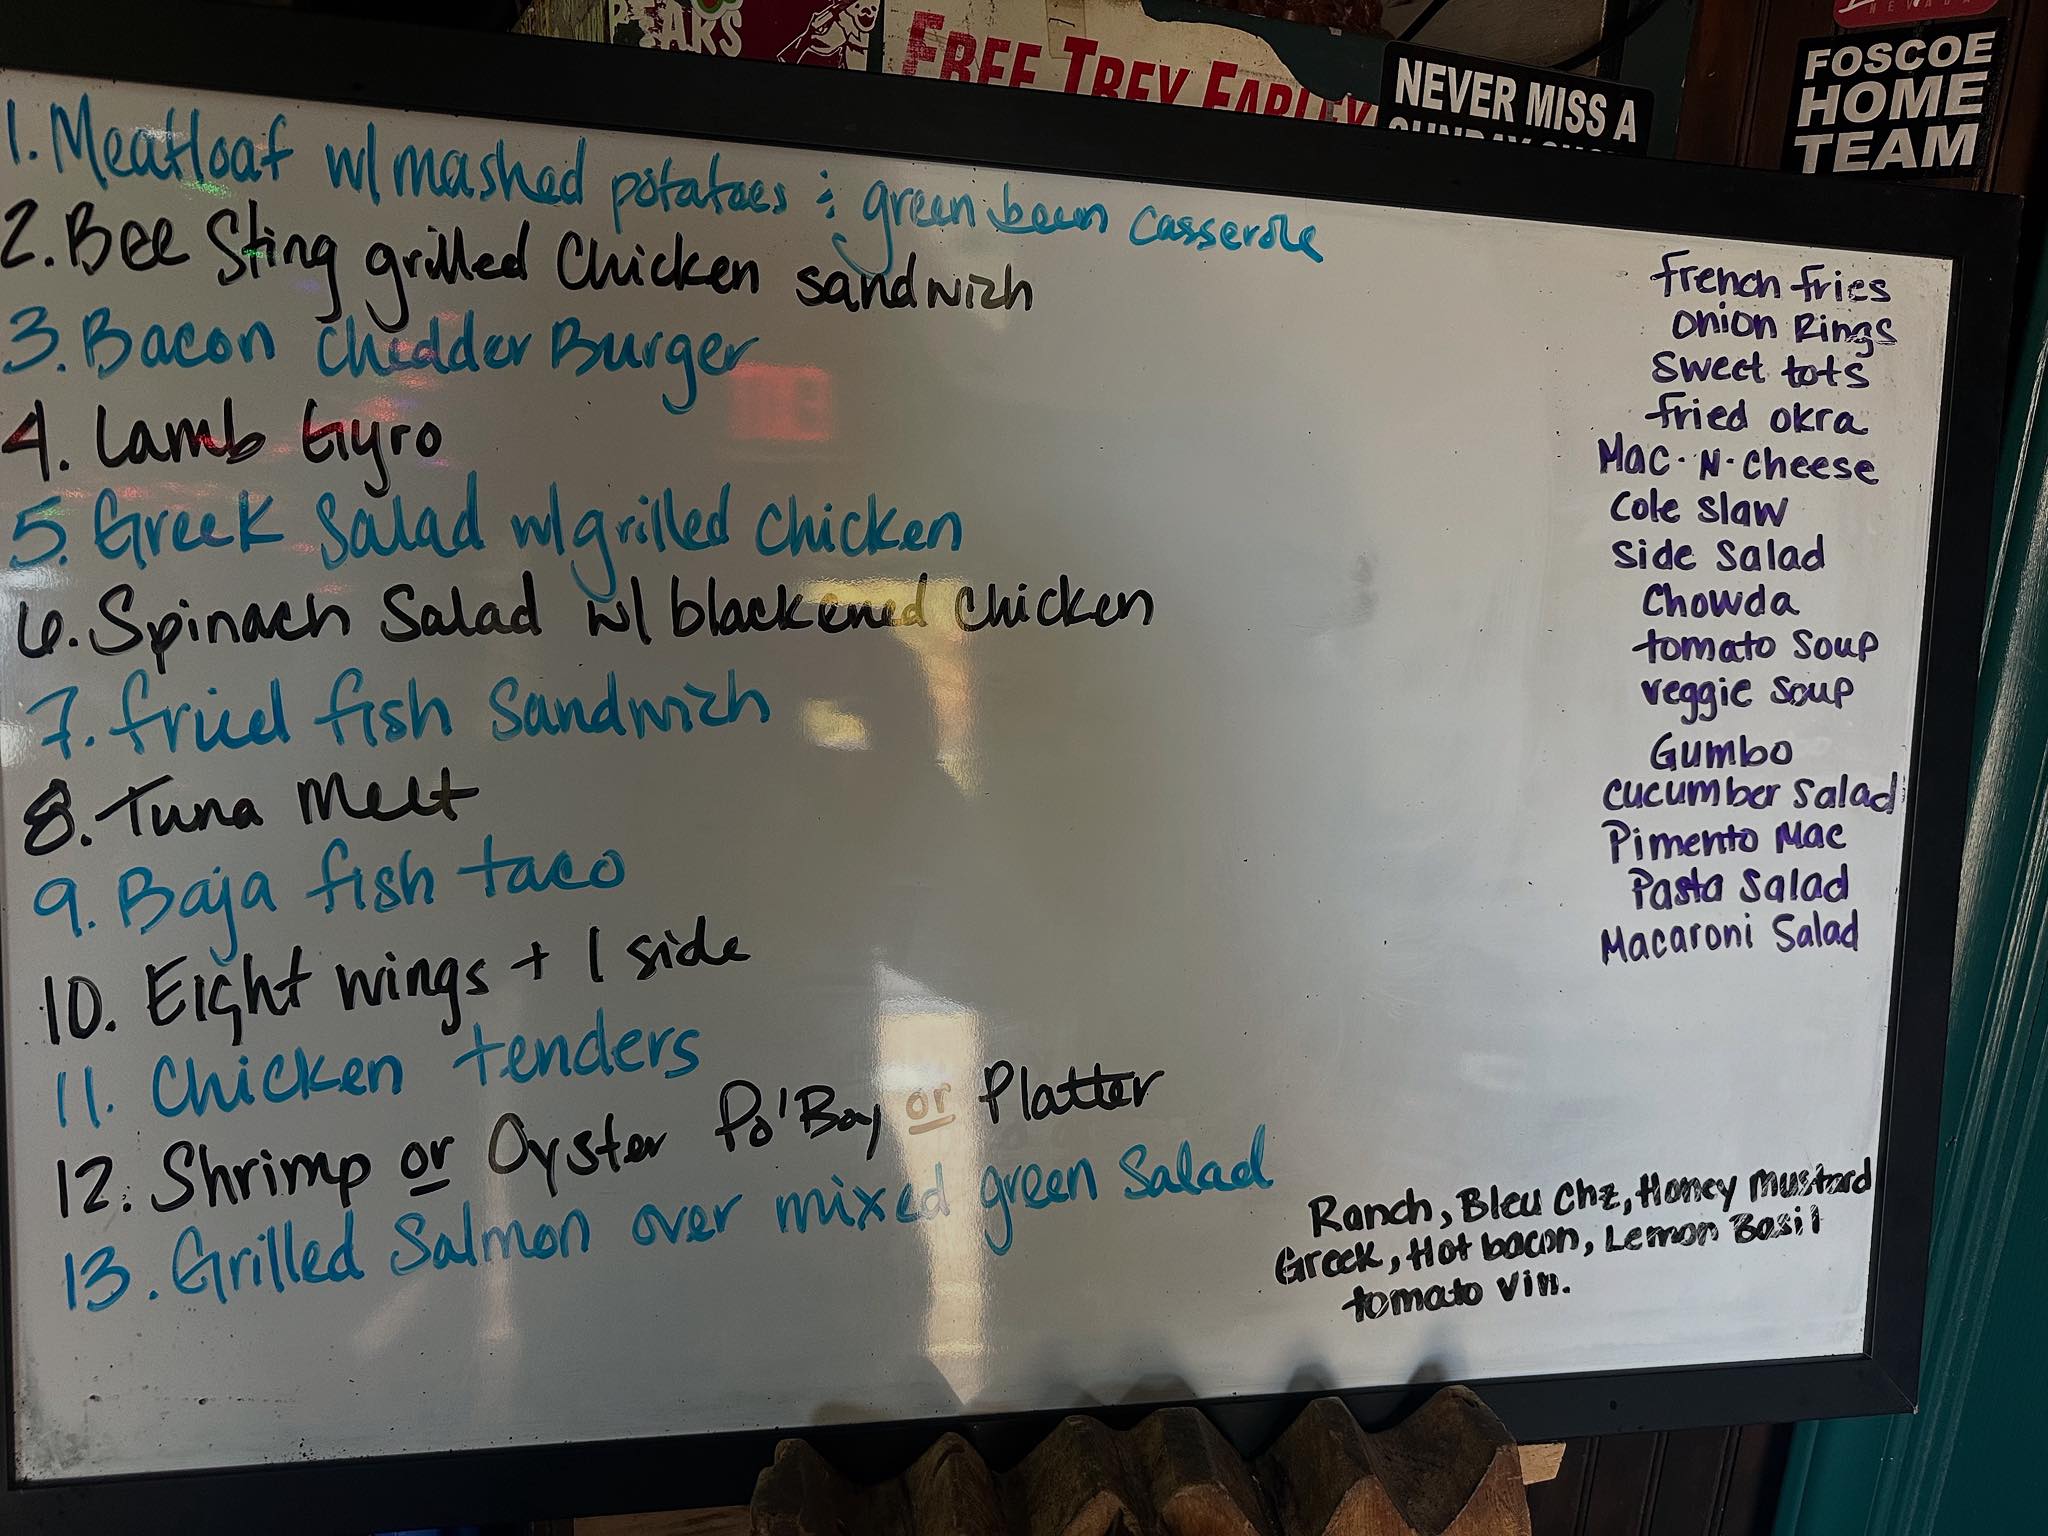 EARS
FREE TREY
NEVER MISS A
NEVADA
FOSCOE
HOME
TEAM
1. Meatloaf w/ mashed potatoes & green bean casserole
2. Bee Sting grilled Chicken sandwich
3. Bacon chedder Burger
4. Lamb Gyro
5. Greek Salad w/ grilled chicken
6. Spinach Salad w/ blackened chicken
7. fried fish sandwich
8. Tuna Melt
9. Baja fish taco
10. Eight wings + 1 side
11. Chicken tenders
12. Shrimp or Oyster Po'Boy or Platter
13. Grilled Salmon over mixed green Salad
french fries
onion Rings
Sweet tots
fried okra
Mac·N·Cheese
Cole Slaw
Side Salad
Chowda
tomato Soup
veggie Soup
Gumbo
Cucumber Salad
Pimento Mac
Pasta Salad
Macaroni Salad
Ranch, Bleu Chz, Honey mustard
Greek, Hot bacon, Lemon Basil
tomato vin.